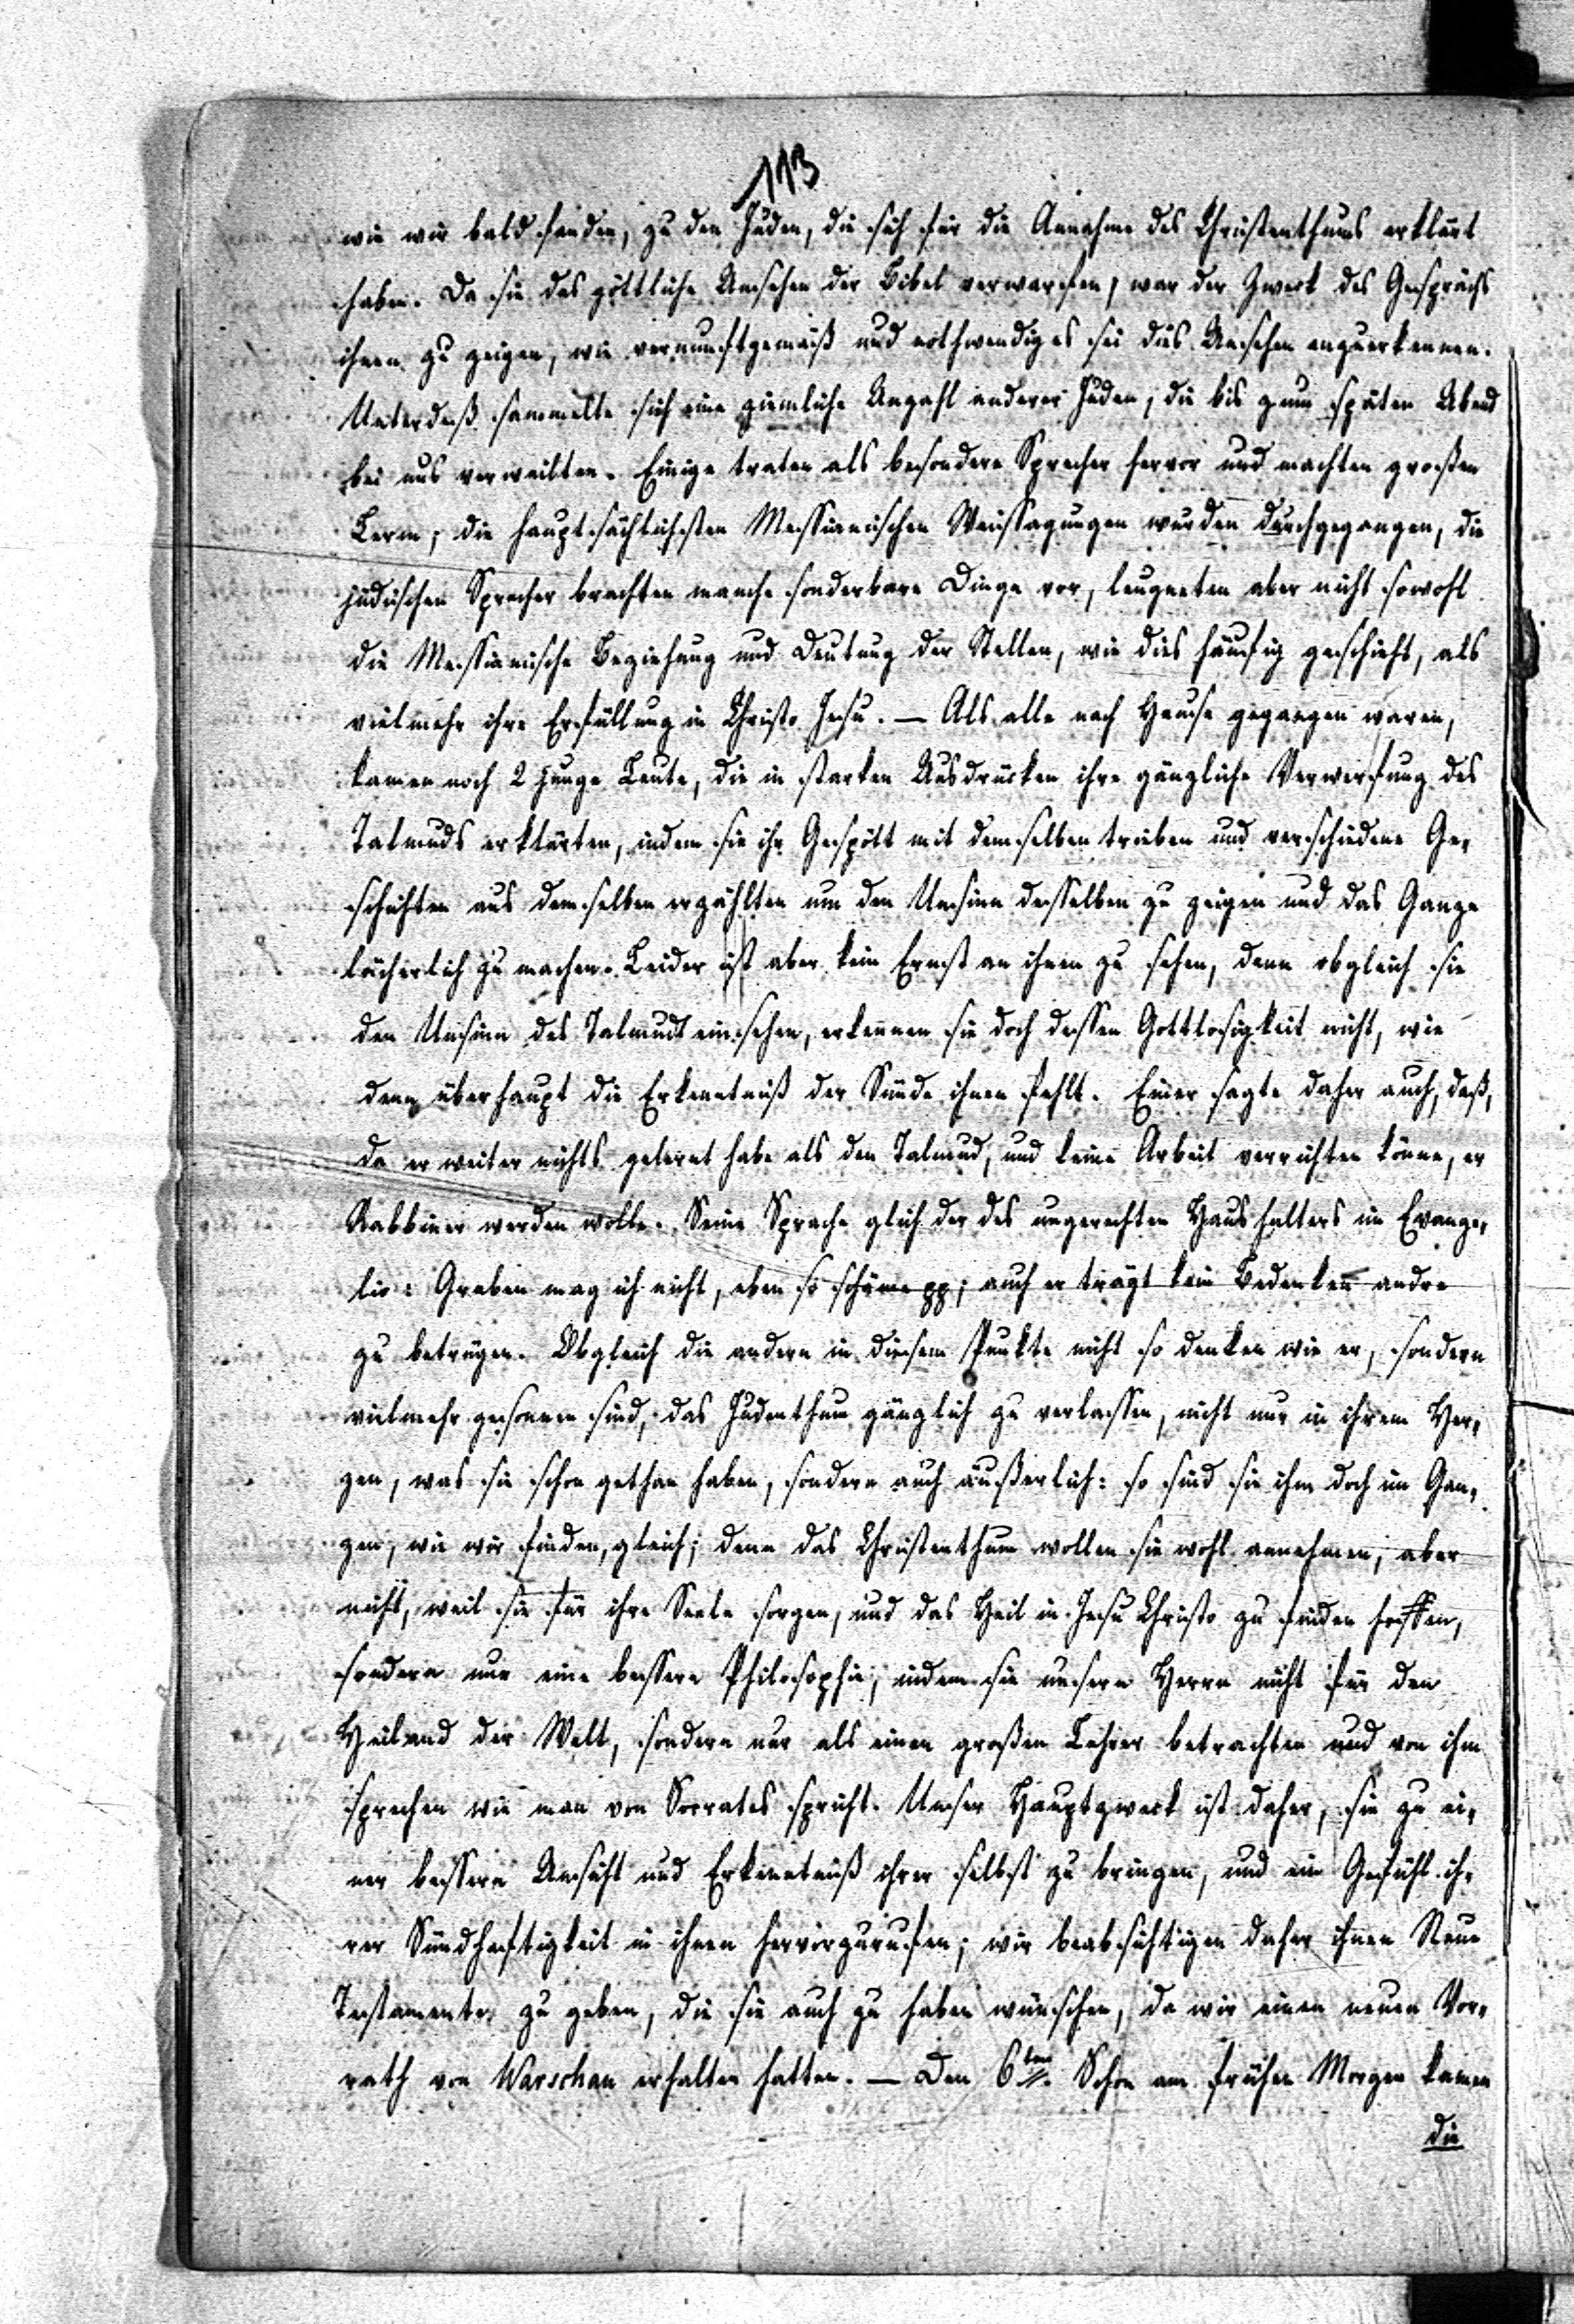 113
wie wir bald fanden, zu den Juden, die sich für die Annahme des Christenthums erklärt
haben. Da sie das göttliche Ansehen der Bibel verwarfen, war der Zweck des Gesprächs
ihnen zu zeigen, wie vernunftgemäß und nothwendig es sei dies Ansehen anzuerkennen.
Unterdeß sammelte sich eine ziemliche Anzahl anderer Juden, die bis zum späten Abend
bei uns verweilten. Einige traten als besondere Sprecher hervor und machten großen
Lerm, die hauptsächlichsten Messianischen Weissagungen wurden durchgegangen, die
jüdischen Sprecher brachten manche sonderbare Dinge vor, leugneten aber nicht sowohl
die Messianische Beziehung und Deutung der Stellen, wie dies häufig geschieht, als
vielmehr ihre Erfüllung in Christo Jesu. — Als alle nach Hause gegangen waren,
kamen noch 2 junge Leute, die in starken Ausdrücken ihre gänzliche Verwerfung des
Talmuds erklärten, indem sie ihr Gespött mit demselben trieben und verschiedene Ge-
schichten aus demselben erzählten um den Unsinn desselben zu zeigen und das Ganze
lächerlich zu machen. Leider ist aber kein Ernst an ihnen zu sehen, denn obgleich sie
den Unsinn des Talmuds einsehen, erkennen sie doch dessen Gottlosigkeit nicht, wie
denn überhaupt die Erkenntniß der Sünde ihnen fehlt. Einer sagte daher auch, daß,
da er weiter nichts gelernt habe als den Talmud, und keine Arbeit verrichten könne, er
Rabbiner werden wolle. Seine Sprache glich der des ungerechten Haushalters im Evange-
lio: Graben mag ich nicht, eben so schäme pp; auch er trägt kein Bedenken andre
zu betrügen. Obgleich die andern in diesem Punkte nicht so denken wie er, sondern
vielmehr gesonnen sind, das Judenthum gänzlich zu verlassen, nicht nur in ihrem Her-
zen, was sie schon gethan haben, sondern auch äußerlich: so sind sie ihm doch im Gan-
zen, wie wir finden, gleich; denn das Christenthum wollen sie wohl annehmen, aber
nicht, weil sie für ihre Seele sorgen, und das Heil in Jesu Christo zu finden hoffen,
sondern nur eine bessere Philosophie, indem sie unsern Herrn nicht für den
Heiland der Welt, sondern nur als einen großen Lehrer betrachten und von ihm
sprechen wie man von Socrates spricht. Unser Hauptzweck ist daher, sie zu ei-
ner bessern Ansicht und Erkenntniß ihrer selbst zu bringen, und ein Gefühl ih-
rer Sündhaftigkeit in ihnen hervorzurufen; wir beabsichtigen daher ihnen Neue
Testamente zu geben, die sie auch zu haben wünschen, da wir einen neuen Vor-
rath von Warschau erhalten hatten. — Den 6ten. Schon am frühen Morgen kamen
die